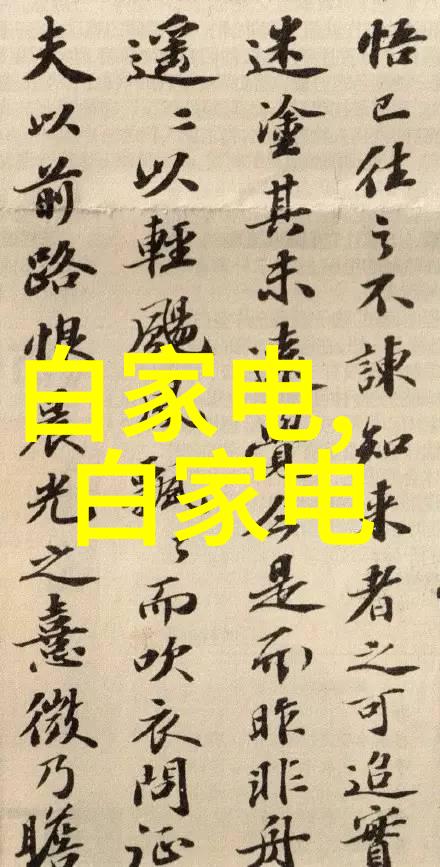 悟已往之不諫知来者之可追實
迷塗其未遠覺今是而昨非舟
遥〻以輕颺風飄〻而吹衣問征
夫以前路恨晨光之熹微乃瞻
白家电,
白家电